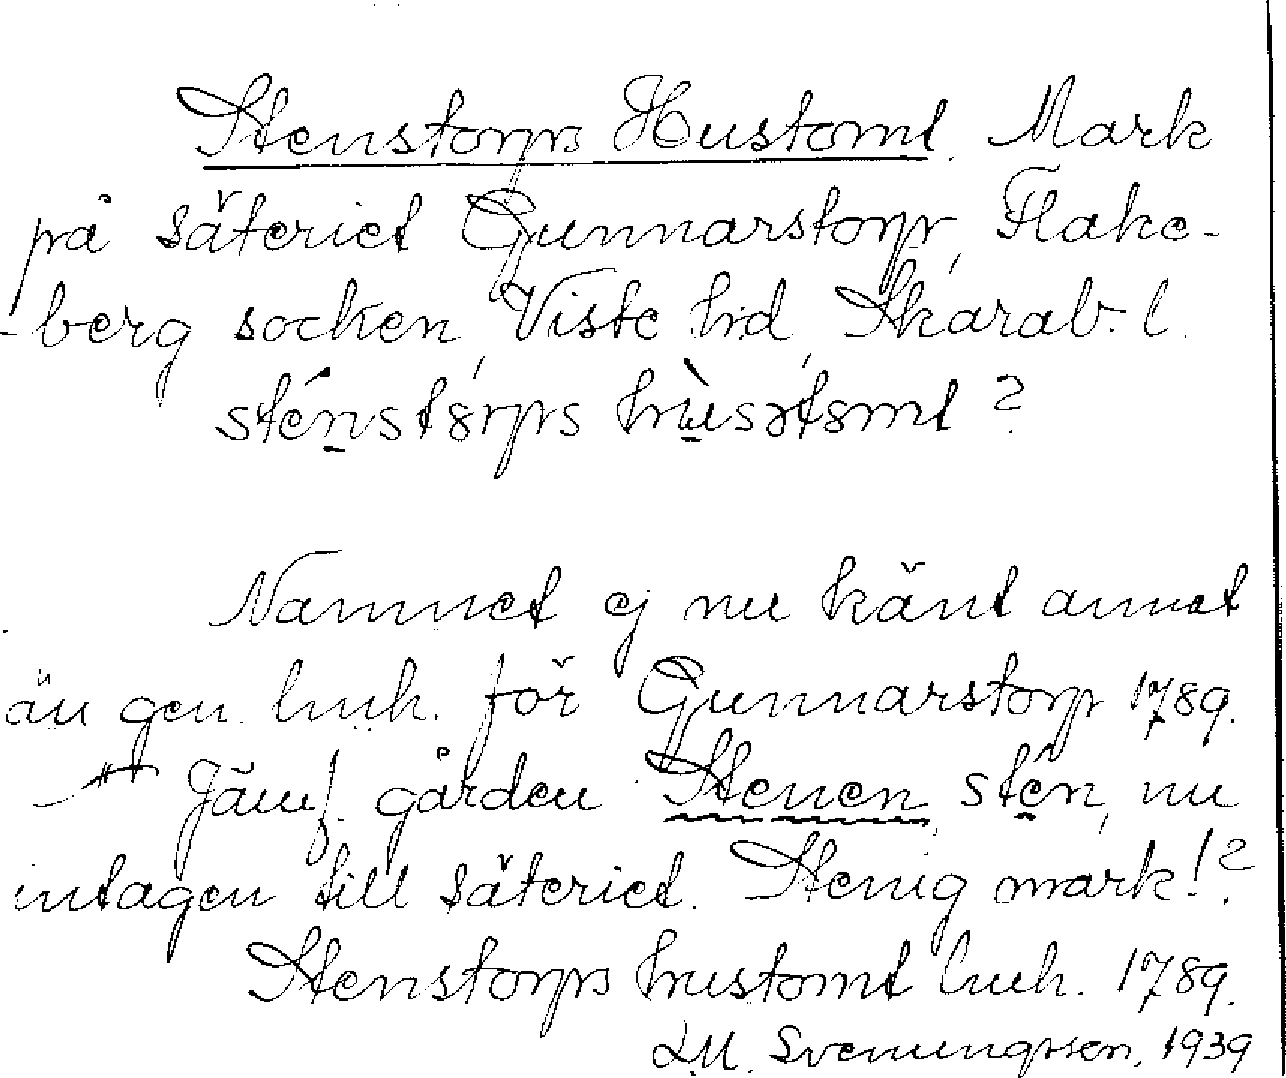 Stenstorps Hustomt. Mark
på säteriet Gunnarstorp, Flake-
-berg socken, Viste hd, Skarab. l.
sténstɤrps hùsətɤmt?
Namnet ej nu känt annat
än gen. lmh. för Gunnarstorp 1789.
Jämf. gården Stenen, stén, nu
intagen till säteriet. Stenig mark!?
Stenstorps hustomt lmh. 1789.
L.M. Svenungsson, 1939